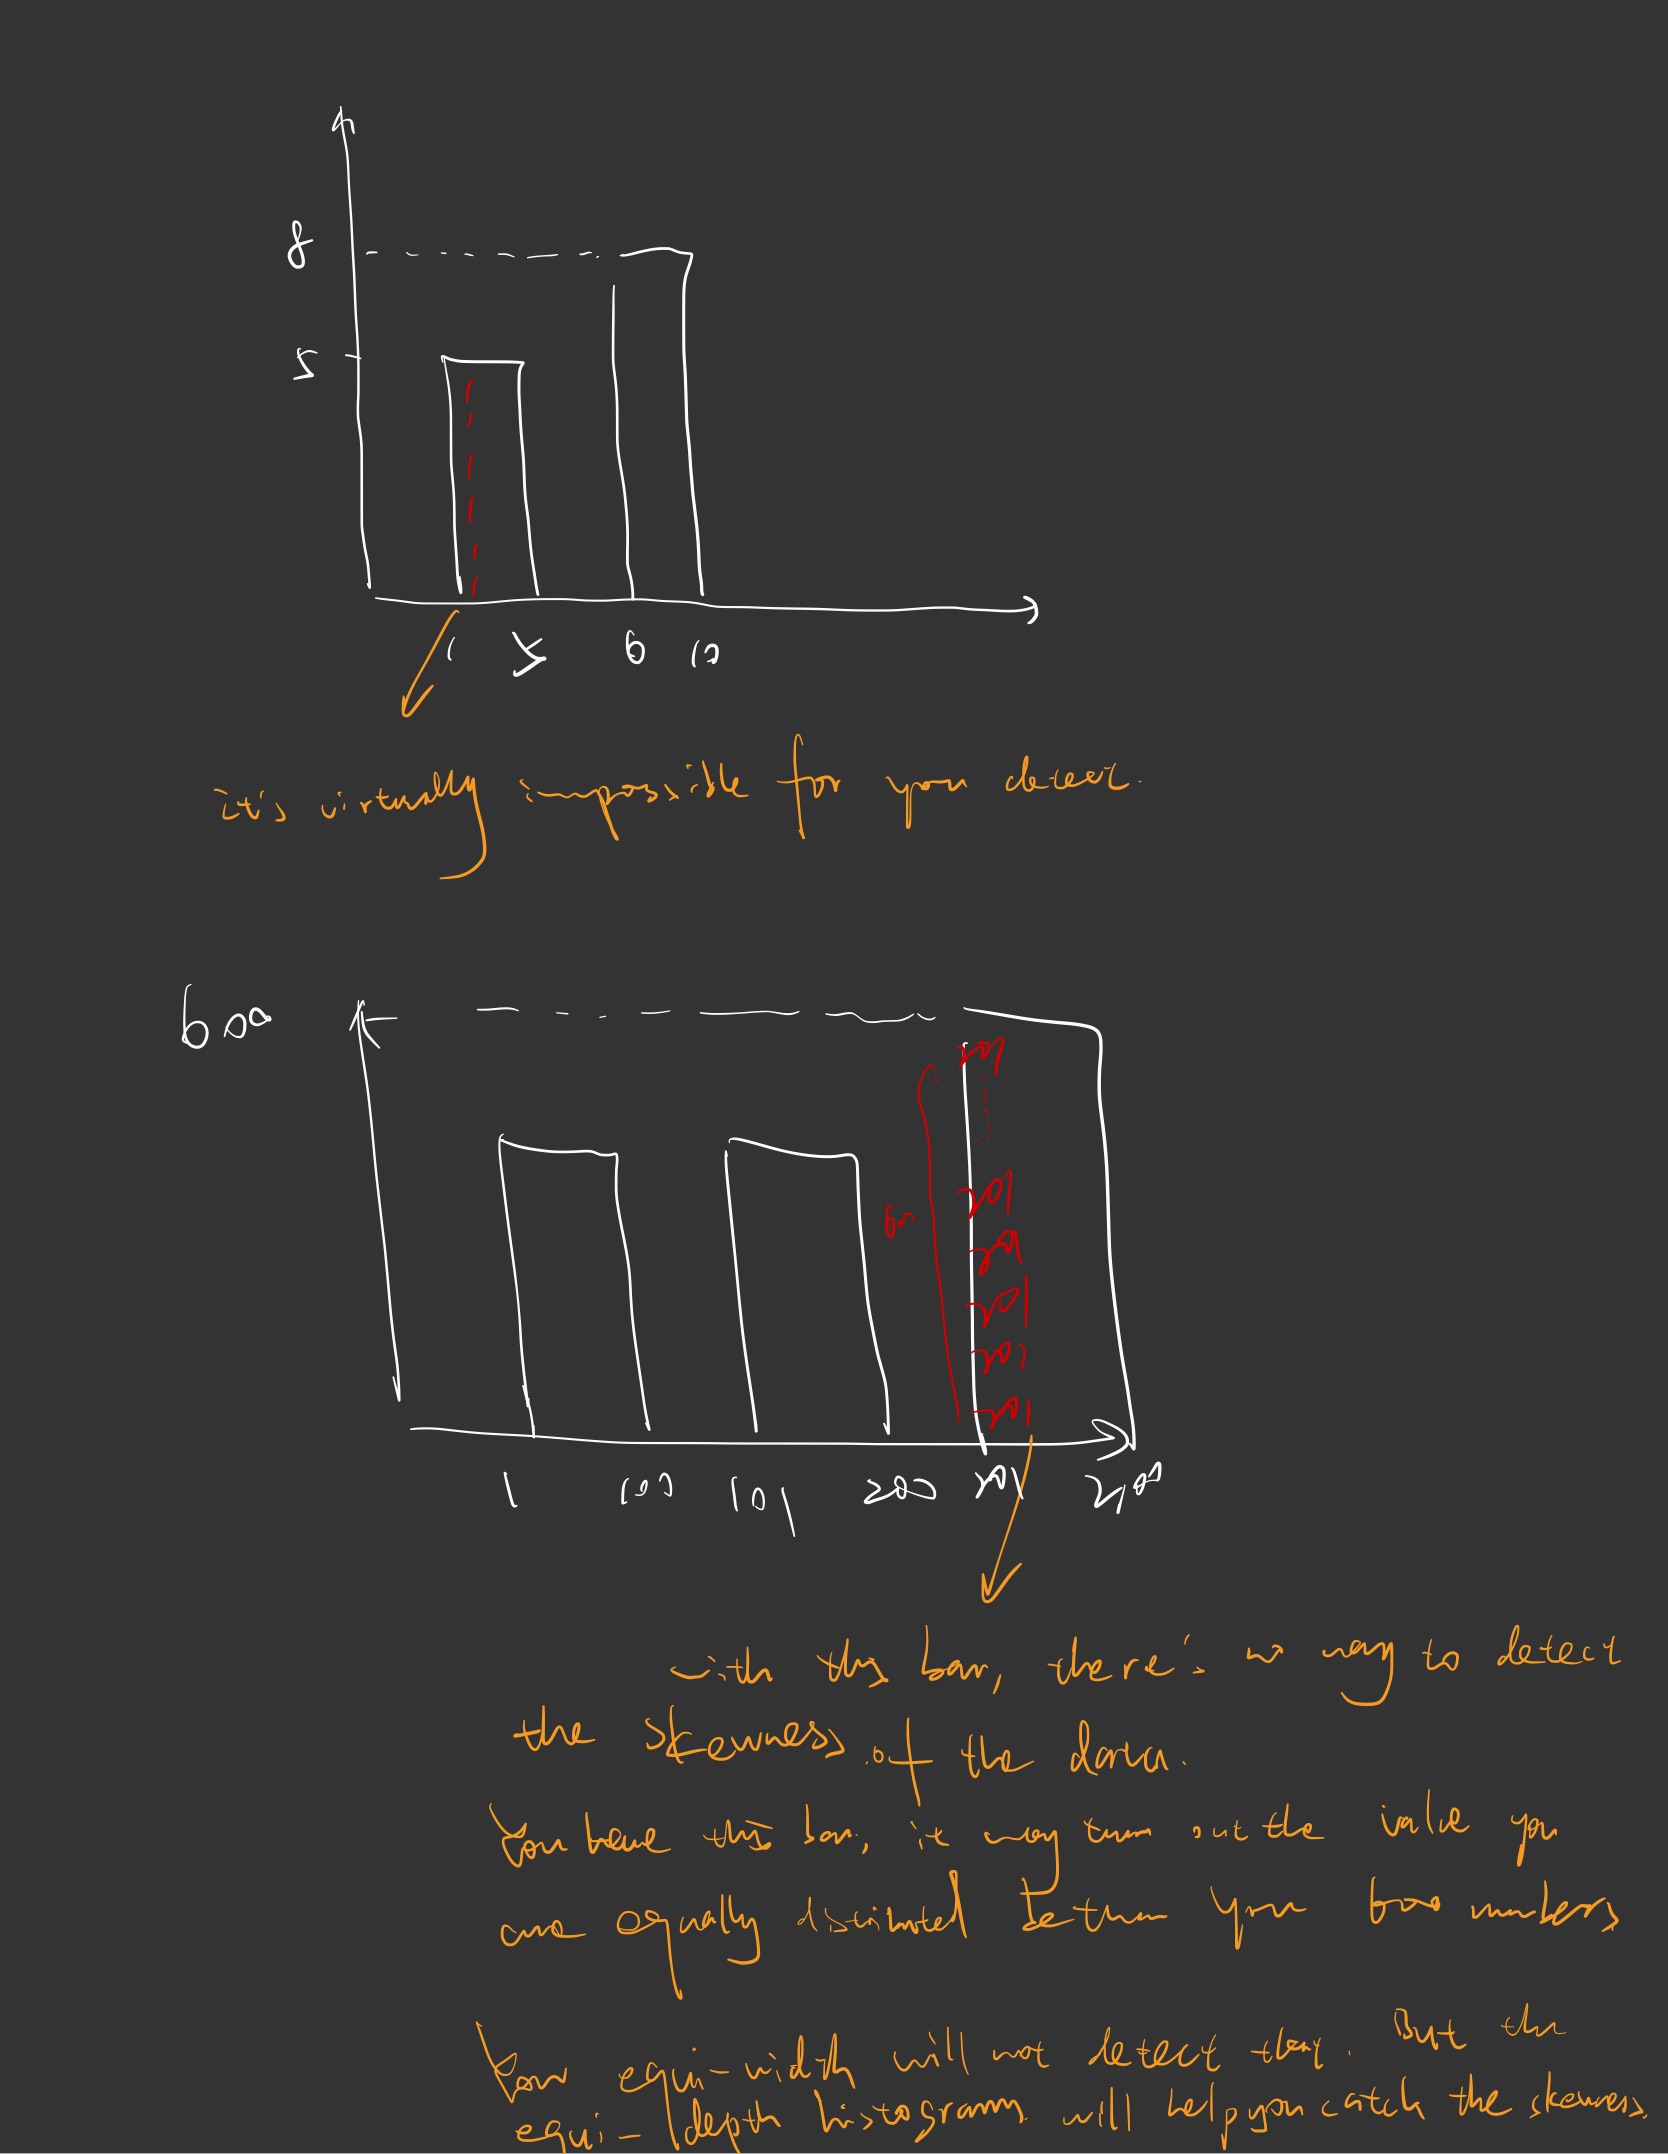 8
5
1 5 6 10
it's virtually impossible for you detect.
600
201
201
600 201
201
201
201
1 100 101 200 201 300
with this bar, there's no way to detect
the skewness of the data.
You have this bar, it may turn out the value you
are equally distributed between your numbers
Your equi-width will not detect that. But the
equi-depth histograms will help you catch the skewness.